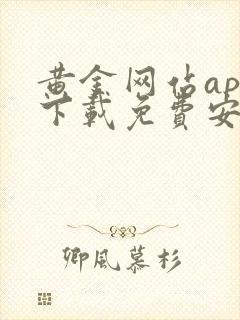 黄金网站ap
下载免费安
卿风慕杉